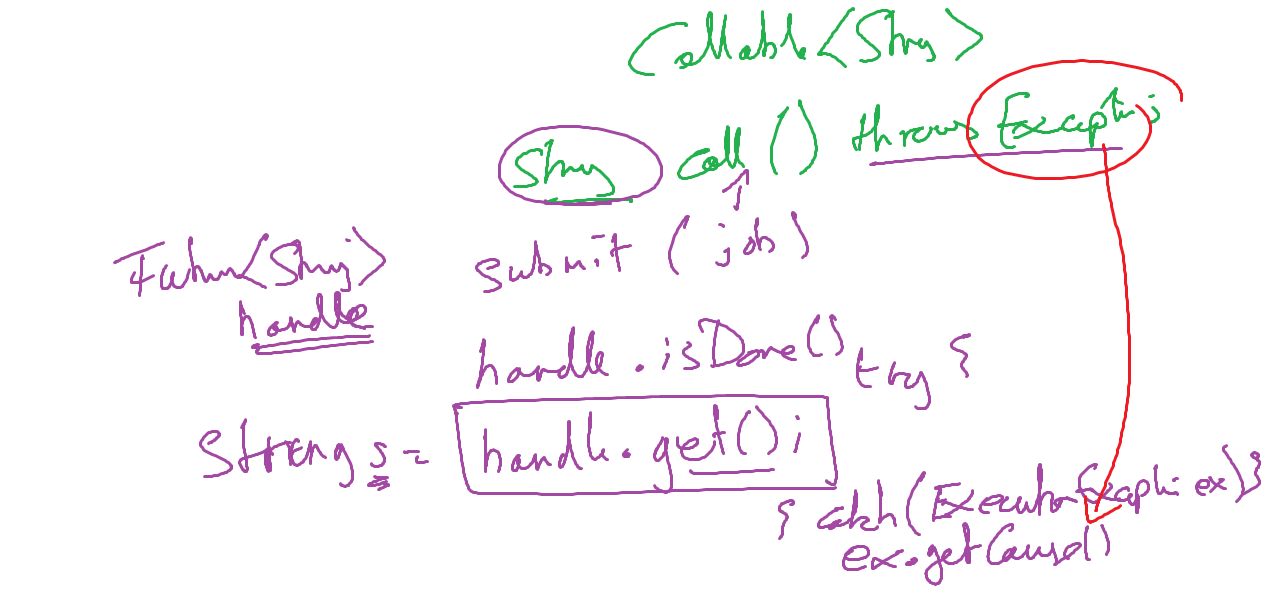 Callable<String>
String call() throws Exception;
Future<String> submit(job)
handle
handle.isDone() try {
String s = handle.get();
} catch(ExecutionException ex)}
ex.getCause()